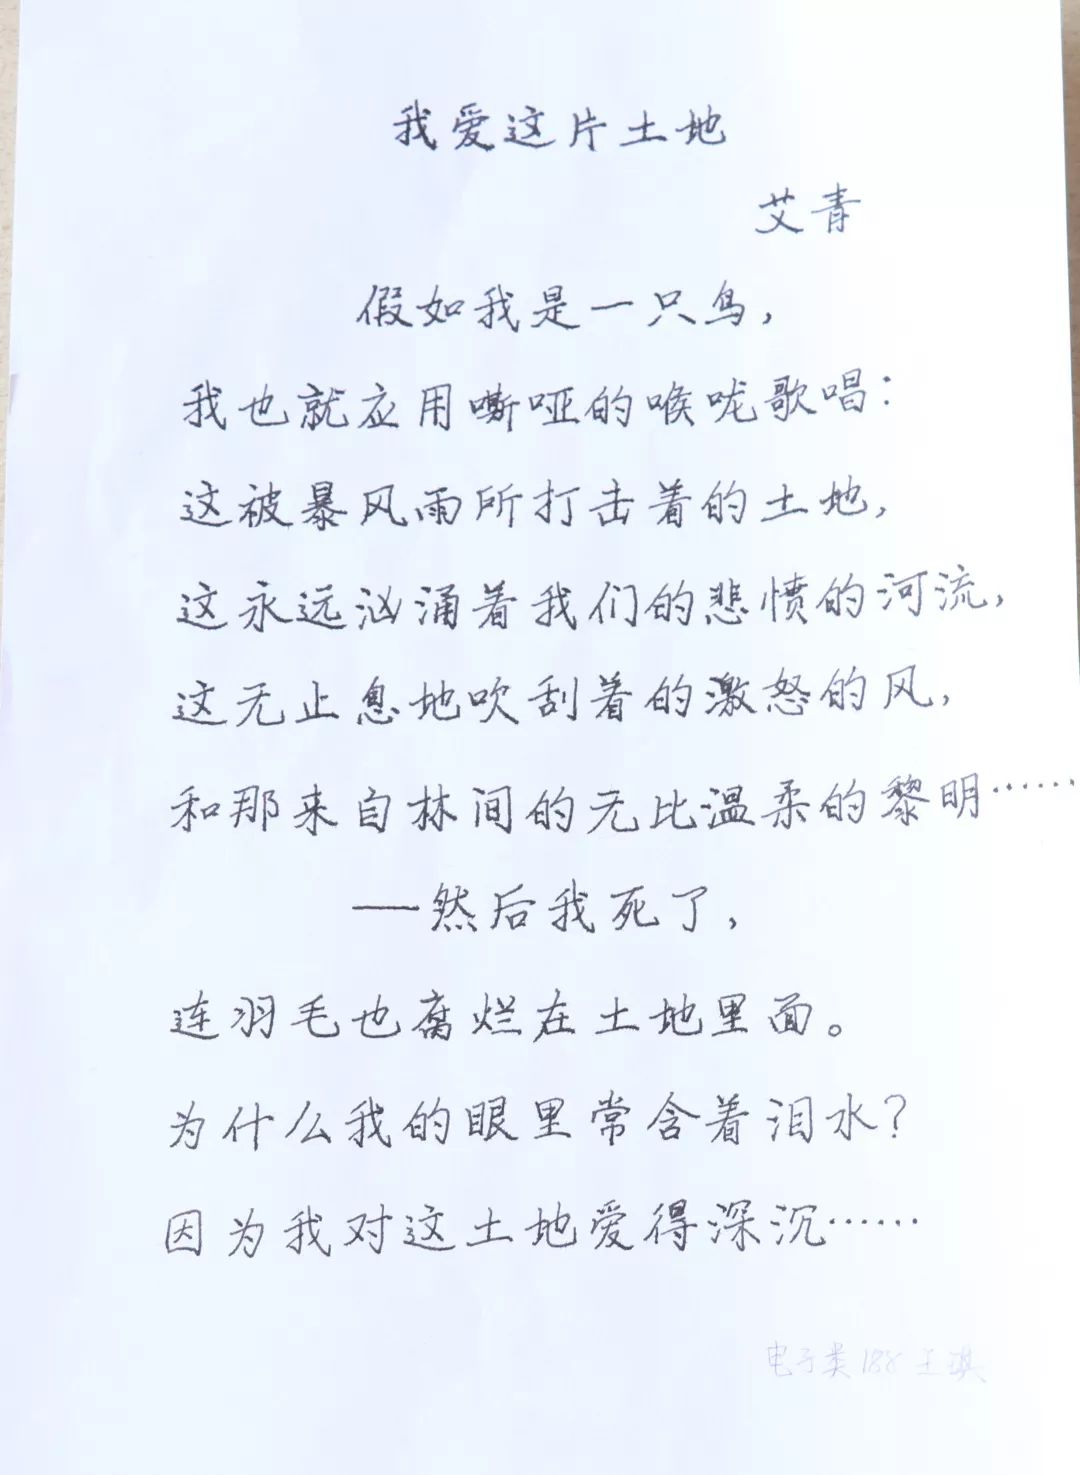 我爱这片土地
艾青
假如我是一只鸟,
我也就应用嘶哑的喉咙歌唱:
这被暴风雨所打击着的土地,
这永远汹涌着我们的悲愤的河流,
这无止息地吹刮着的激怒的风,
和那来自林间的无比温柔的黎明……
——然后我死了,
连羽毛也腐烂在土地里面。
为什么我的眼里常含着泪水?
因为我对这土地爱得深沉……
电子类188 王琪